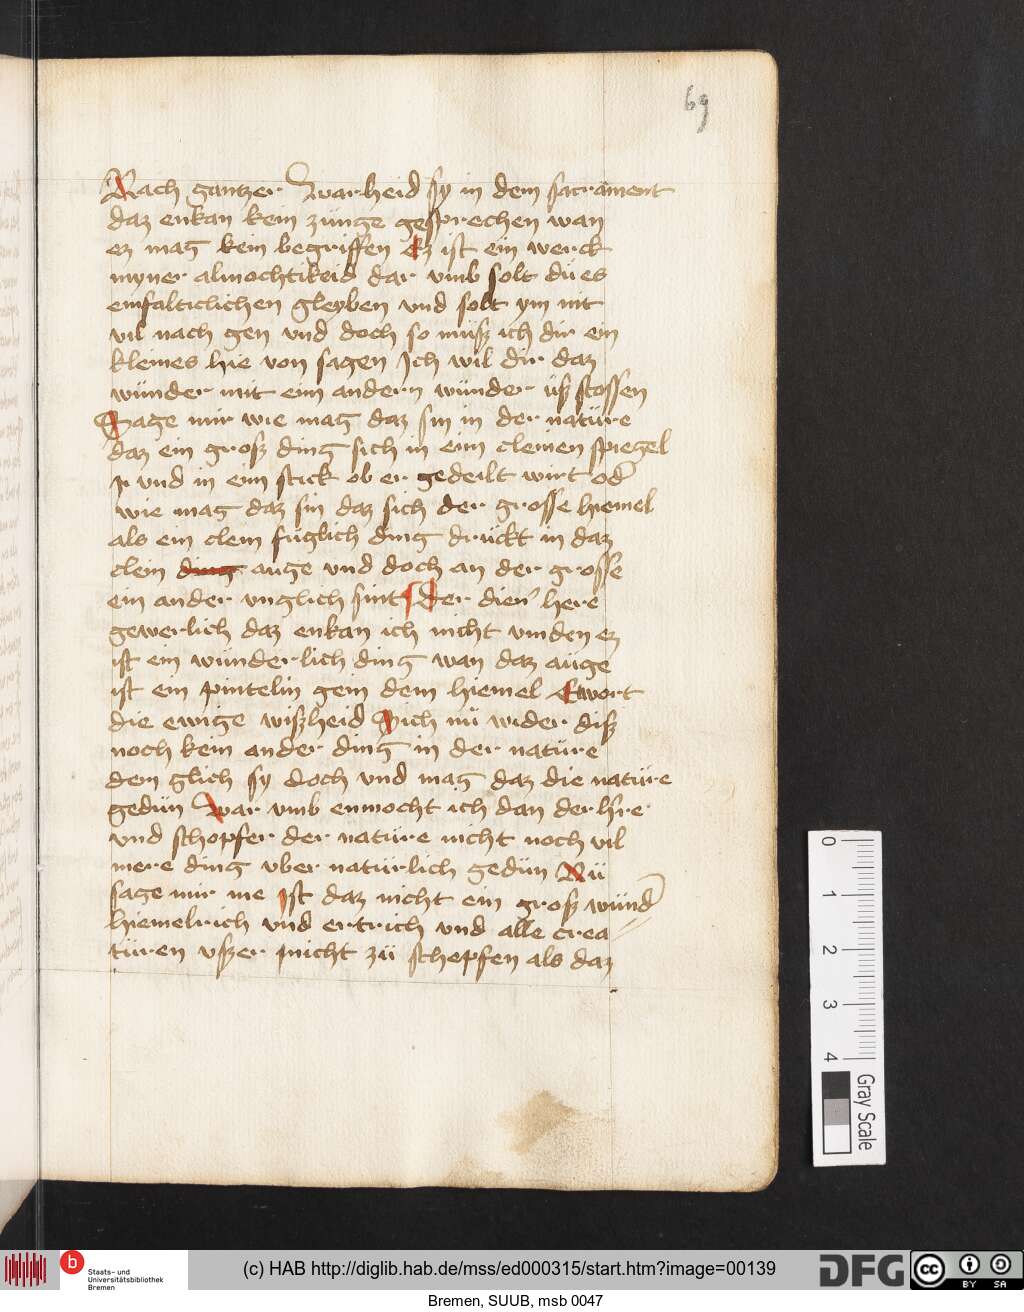 69
Nach gantzer warheid sy in dem sacrament
daz enkan kein zunge gesprechen wan
ez mag kein begriffen Ez ist ein werck
myner almochtikeid dar vmb solt du es
einfalticlichen gleyben vnd solt ym nit
vil nach gen vnd doch so müsz ich dir ein
kleines hie von sagen Ich wil dir daz
wünder mit eim andern wünder üsz stossen
Sage mir wie mag daz sin in der natüre
daz ein grosz ding sich in eim cleinen spiegel
vnd in eim stick ob er gedeilt wirt od
wie mag daz sin daz sich der grosse hiemel
als ein clein füglich ding druckt in daz
clein ding auge vnd doch an der grosse
ein ander vnglich sint Der dien here
gewerlich daz enkan ich nicht vinden ez
ist ein wünderlich ding wan daz auge
ist ein pintelin gein dem hiemel Antwort
die ewige wiszheid Sich nü wider disz
noch kein ander ding in der natüre
dem glich sy doch vnd mag daz die natüre
gedün war vmb enmocht ich dan der
vnd schopfer der natüre nicht noch vil
mere ding vber natürlich gedün Nü
sage mir me ist daz nicht ein grosz wünd
hiemelrich vnd ertrich vnd alle crea
türen vszer nicht zü schopfen als daz
0
1
2
3
4
Gray Scale
b
Staats- und
Universitätsbibliothek
Bremen
(c) HAB http://diglib.hab.de/mss/ed000315/start.htm?image=00139
DFG
cc
BY SA
Bremen, SUUB, msb 0047